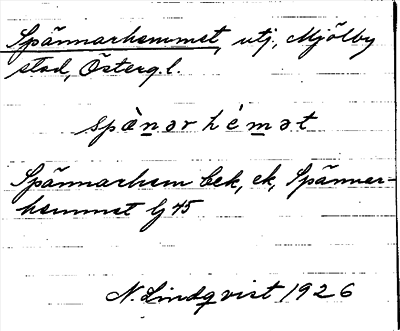 Spännarhemmet, utj., Mjölby
stad, Österg.l.
spànər hémət
Spännarhem bek, ek, Spännar-
hemmet lj 45
N. Lindqvist 1926